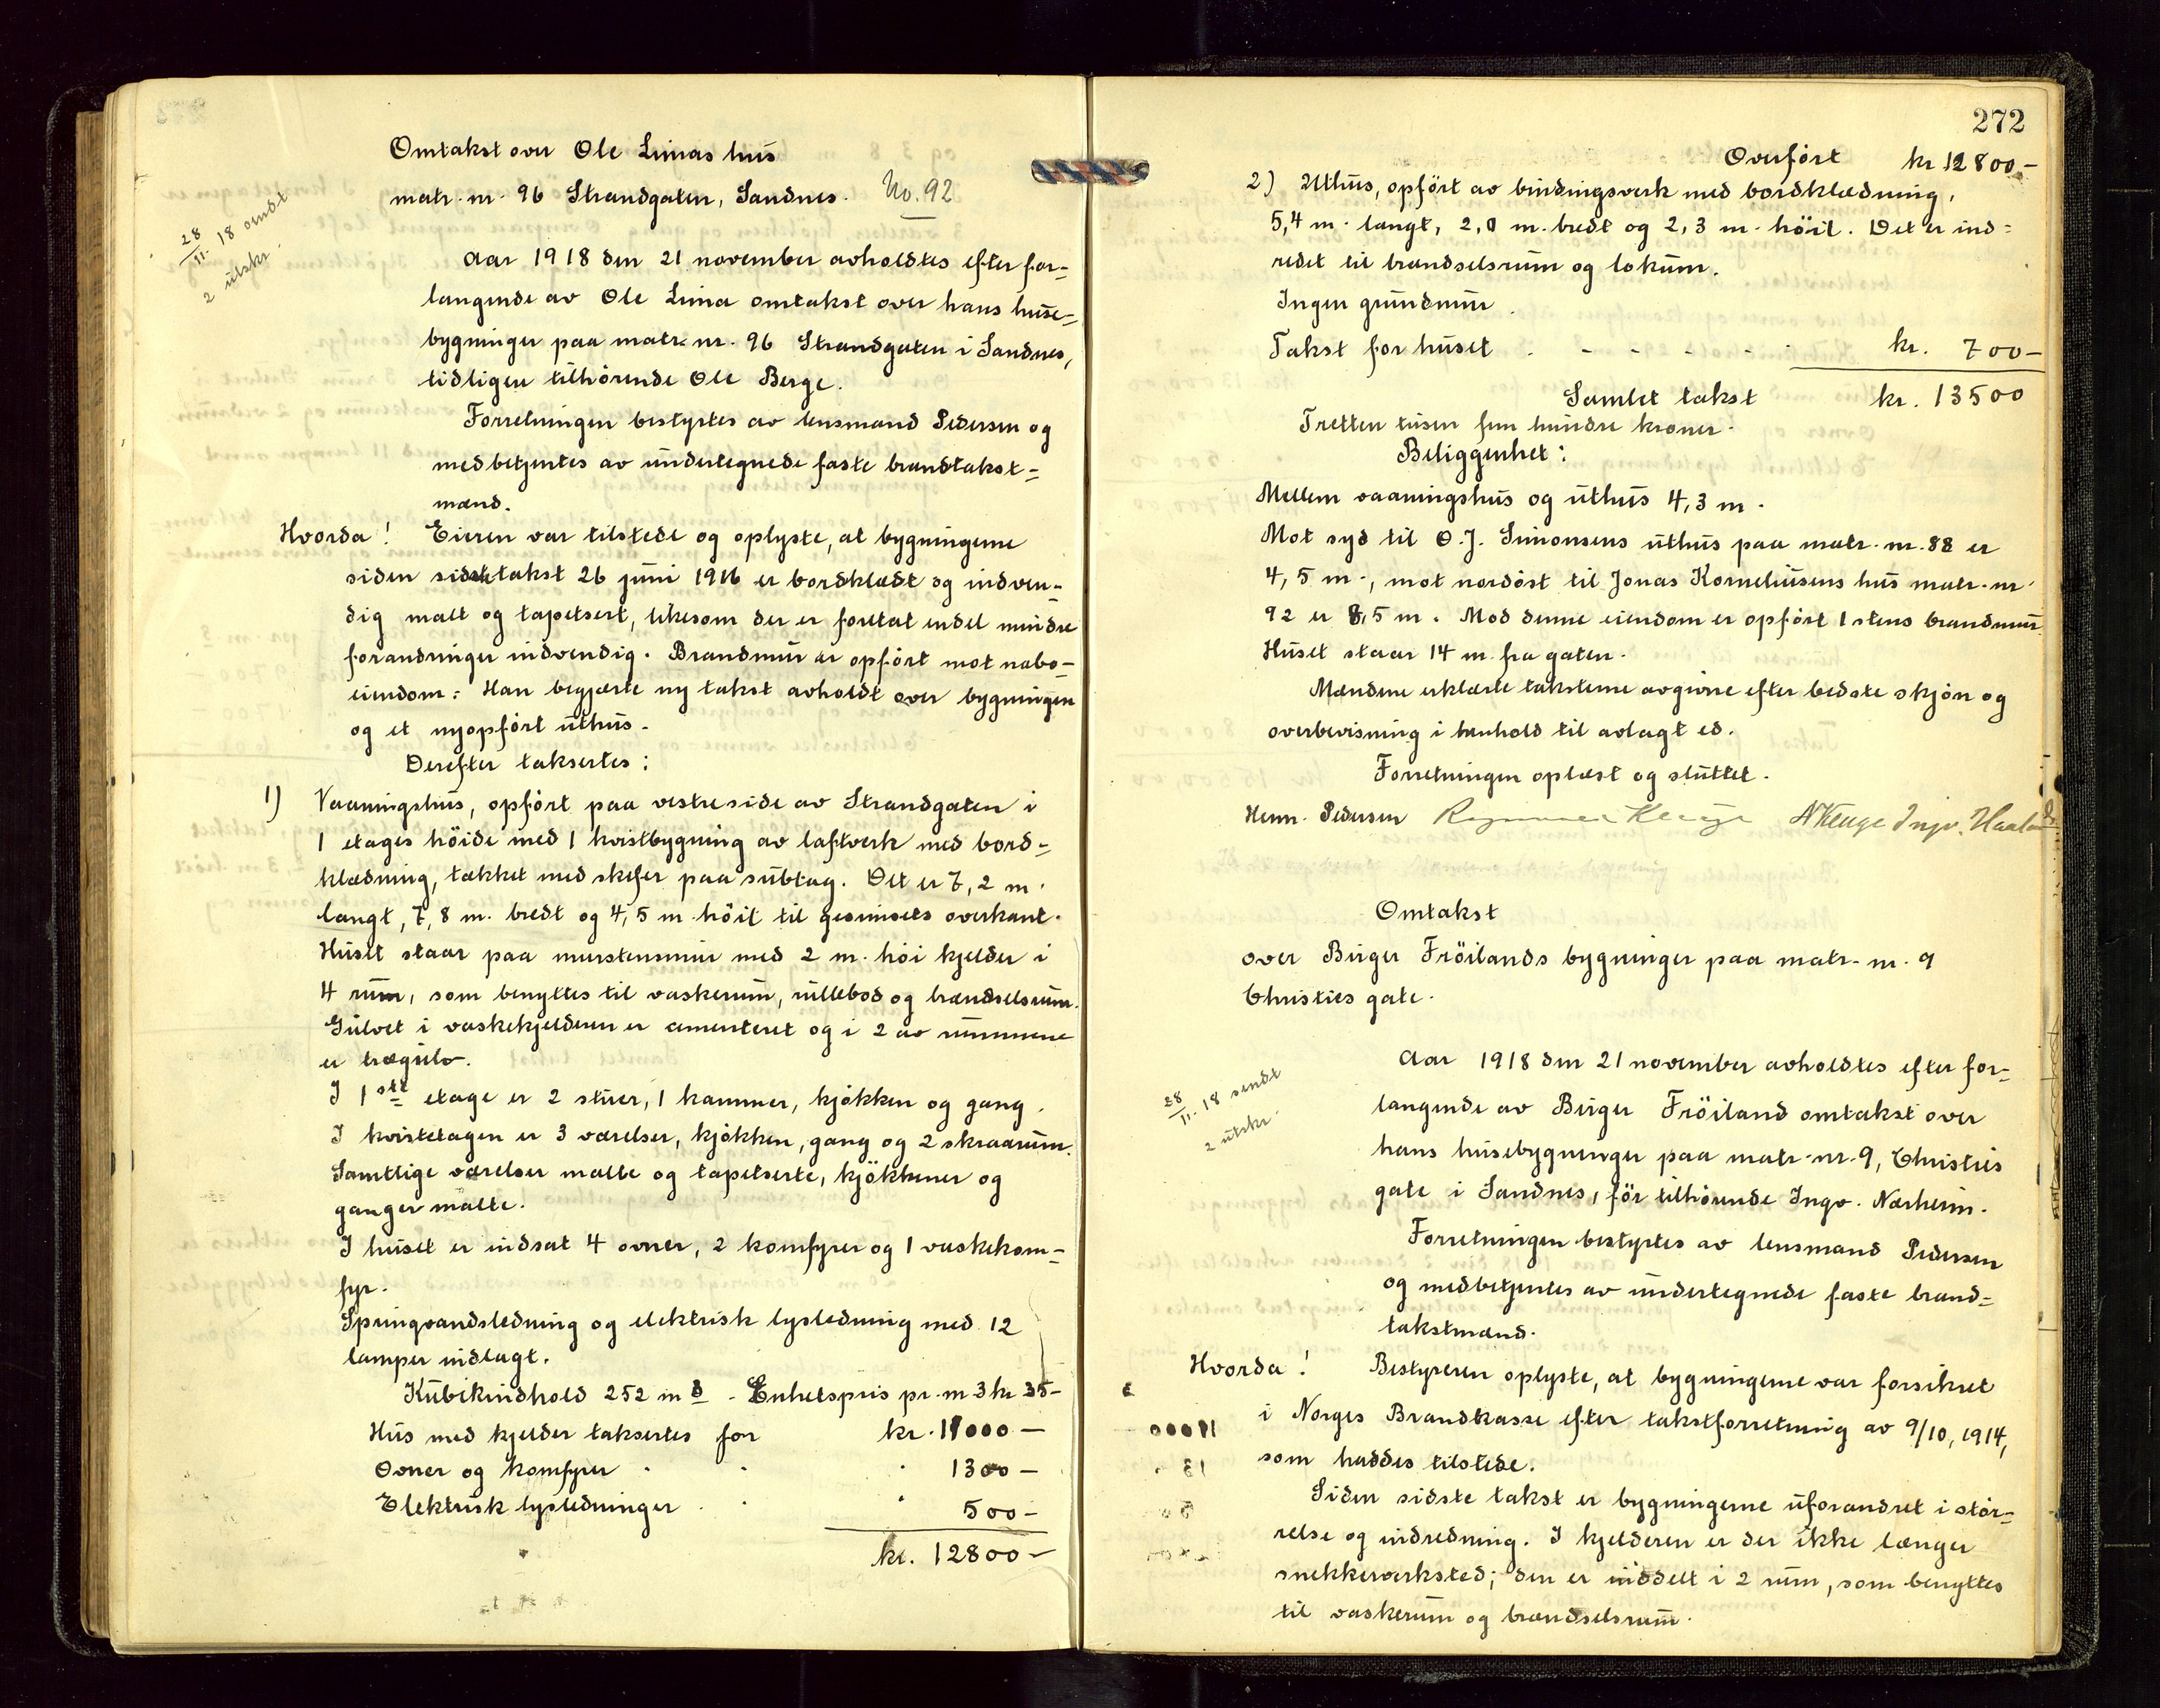 Omtakst over Ole Limas hus
matr. nr. 96 Strandgaten, Sandnes. No. 92
28/11. 18 sendt
2 utskr.
Aar 1918 den 21 november avholdtes efter for=
langende av Ole Lima omtakst over hans huse=
bygninger paa matr. nr. 96 Strandgaten i Sandnes,
tidligere tilhørende Ole Berge.
Forretningen bestyrtes av lensmand Pedersen og
medbetjentes av undertegnede faste brandtakst=
mænd.
Hvorda! Eieren var tilstede og oplyste, at bygningerne
siden sidste takst 26 juni 1916 er bordklædt og indven=
dig malt og tapetsert, likesom der er foretat endel mindre
forandringer indvendig. Brandmur er opført mot nabo=
eiendom. Han begjærte ny takst avholdt over bygningen
og et nyopført uthus.
Derefter taksertes:
1) Vaaningshus, opført paa vestre side av Strandgaten i
1 etages höide med 1 kvistbygning av laftverk med bord=
klædning, tækket med skifer paa subtag. Det er 7,2 m.
langt, 7,8 m. bredt og 4,5 m. höit til gesimsets overkant.
Huset staar paa murstensmur med 2 m. höi kjelder i
4 rum, som benyttes til vaskerum, rullebod og brændselsrum.
Gulvet i vaskekjelderen er cementeret og i 2 av rummene
er trægulv.
I 1ste etage er 2 stuer, 1 kammer, kjøkken og gang.
I kvistetagen er 3 værelser, kjøkken, gang og 2 skraarum.
Samtlige værelser malte og tapetserte, kjökkener og
ganger malte.
I huset er indsat 4 ovner, 2 komfyrer og 1 vaskekom=
fyr.
Springvandsledning og elektrisk lysledning med 12
lamper indlagt.
Kubikindhold 252 m3 - Enhetspris pr. m3 kr 35-
Hus med kjelder taksertes for kr. 11000 —
Ovner og komfyrer . . . 1300 —
Elektrisk lysledninger . . . 500 —
kr. 12800 —
272
Overført kr 12800 —
2) Uthus, opført av bindingsverk med bordklædning,
5,4 m. langt, 2,0 m. bredt og 2,3 m. höit. Det er ind=
redet til brændselsrum og lokum.
Ingen grundmur.
Takst for huset . - - - - - . kr. 700 —
Samlet takst kr. 13500
Tretten tusen fem hundre kroner.
Beliggenhet:
Mellem vaaningshus og uthus 4,3 m.
Mot syd til O. J. Simonsens uthus paa matr. nr. 88 er
4,5 m., mot nordöst til Jonas Korneliusens hus matr. nr.
92 er 8,5 m. Mod denne eiendom er opført 1 stens brandmur.
Huset staar 14 m. fra gaten.
Mændene erklærte taksterne avgivne efter bedste skjøn og
overbevisning i henhold til avlagt ed.
Forretningen oplæst og sluttet.
Henn. Pedersen Ingv. Haaland
Omtakst
over Birger Fröilands bygninger paa matr. nr. 9
Christies gate.
28/11. 18 sendt
2 utskr.
Aar 1918 den 21 november avholdtes efter for=
langende av Birger Fröiland omtakst over
hans husebygninger paa matr. nr. 9, Christies
gate i Sandnes, för tilhørende Ingv. Nærheim.
Forretningen bestyrtes av lensmand Pedersen
og medbetjentes av undertegnede faste brand=
takstmænd.
Hvorda! Bestyreren oplyste, at bygningerne var forsikret
i Norges Brandkasse efter takstforretning av 9/10, 1914,
som haddes tilstede.
Siden sidste takst er bygningerne uforandret i stør=
relse og indredning. I kjelderen er der ikke længer
snekkerverksted; den er inddelt i 2 rum, som benyttes
til vaskerum og brændselsrum.